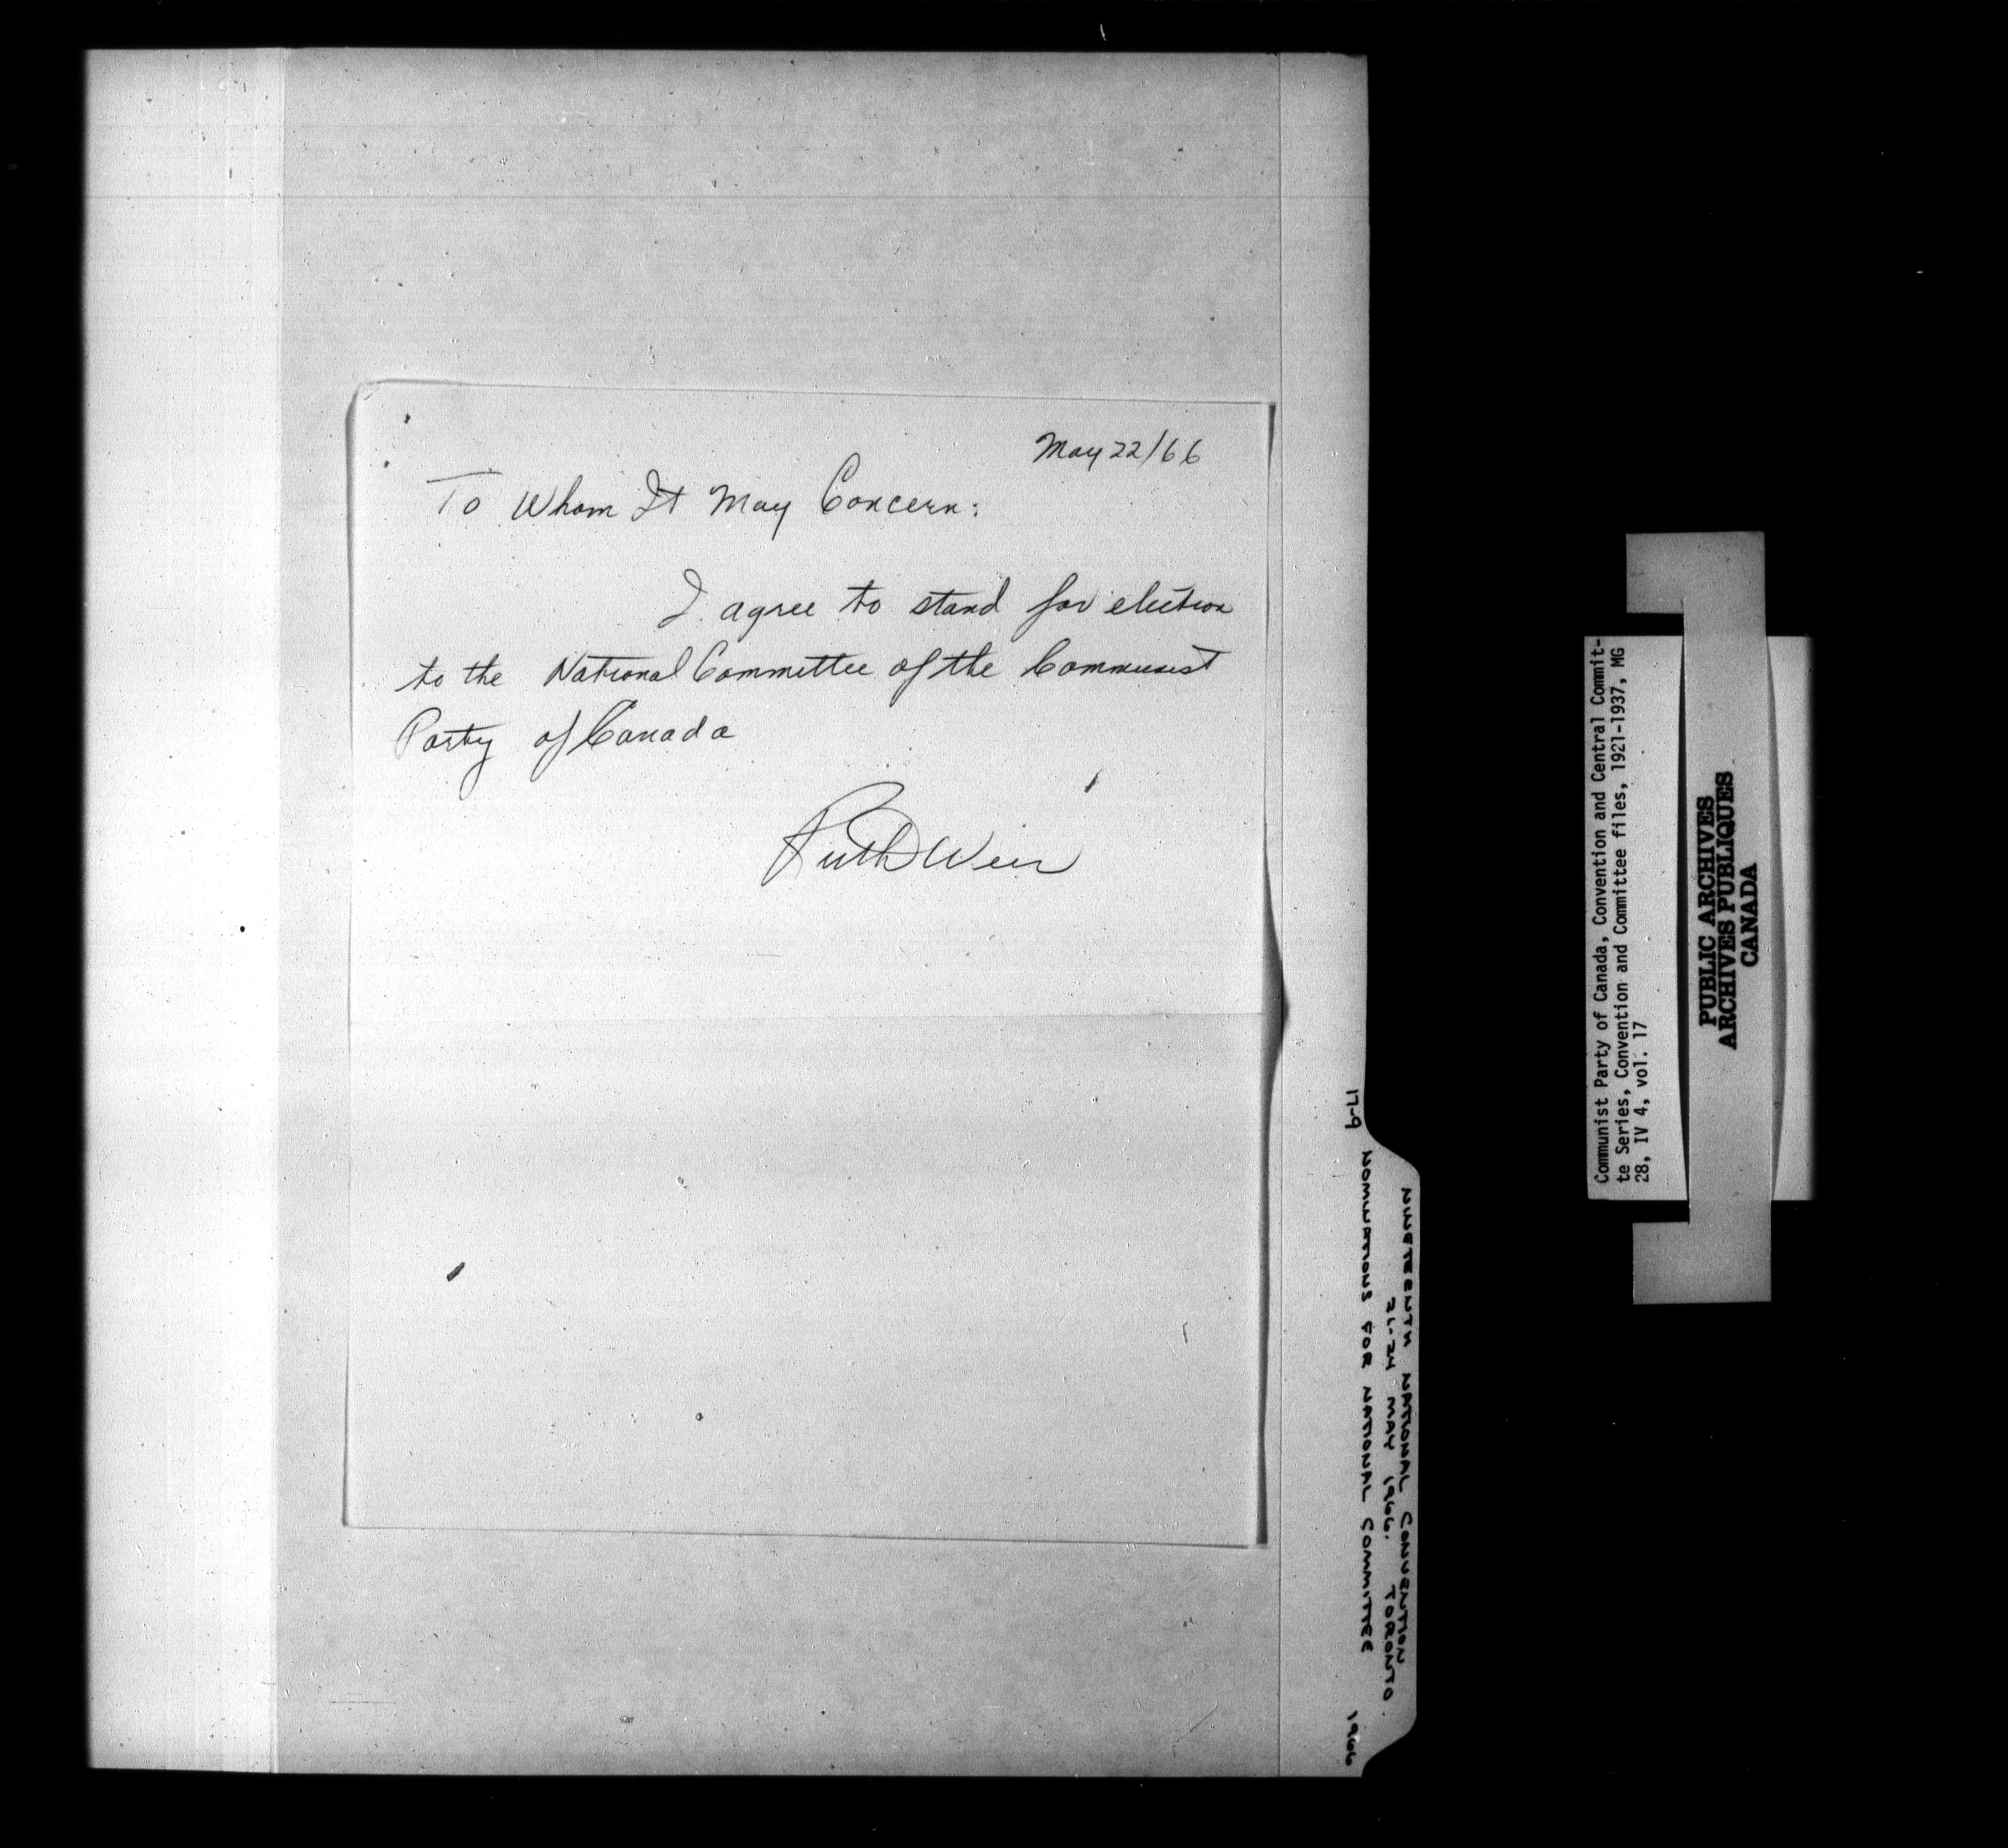 May 22/66
To Whom It May Concern:
I agree to stand for election
to the National Committee of the Communist
Party of Canada
Ruth Weir
17-9
NOMINATIONS FOR NATIONAL COMMITTEE
1966
NINETEENTH NATIONAL CONVENTION
21-24 MAY 1966, TORONTO
Communist Party of Canada, Convention and Central Commit-
te Series, Convention and Committee files, 1921-1937, MG
28, IV 4, vol. 17
PUBLIC ARCHIVES
ARCHIVES PUBLIQUES
CANADA